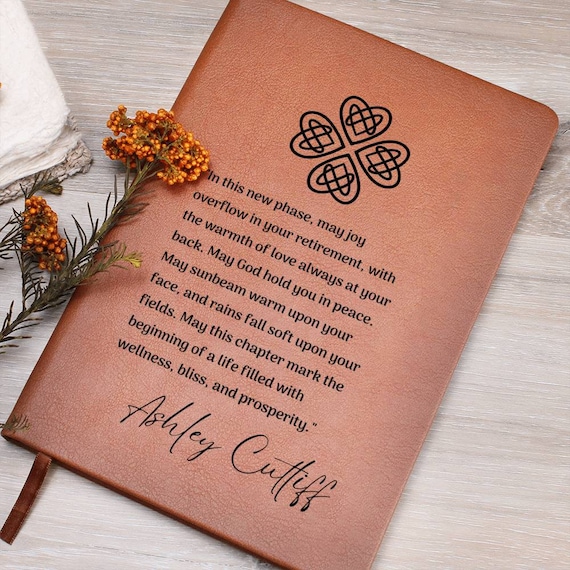 "In this new phase, may joy
overflow in your retirement, with
the warmth of love always at your
back. May God hold you in peace.
May sunbeam warm upon your
face, and rains fall soft upon your
fields. May this chapter mark the
beginning of a life filled with
wellness, bliss, and prosperity. "
Ashley Cuttiff